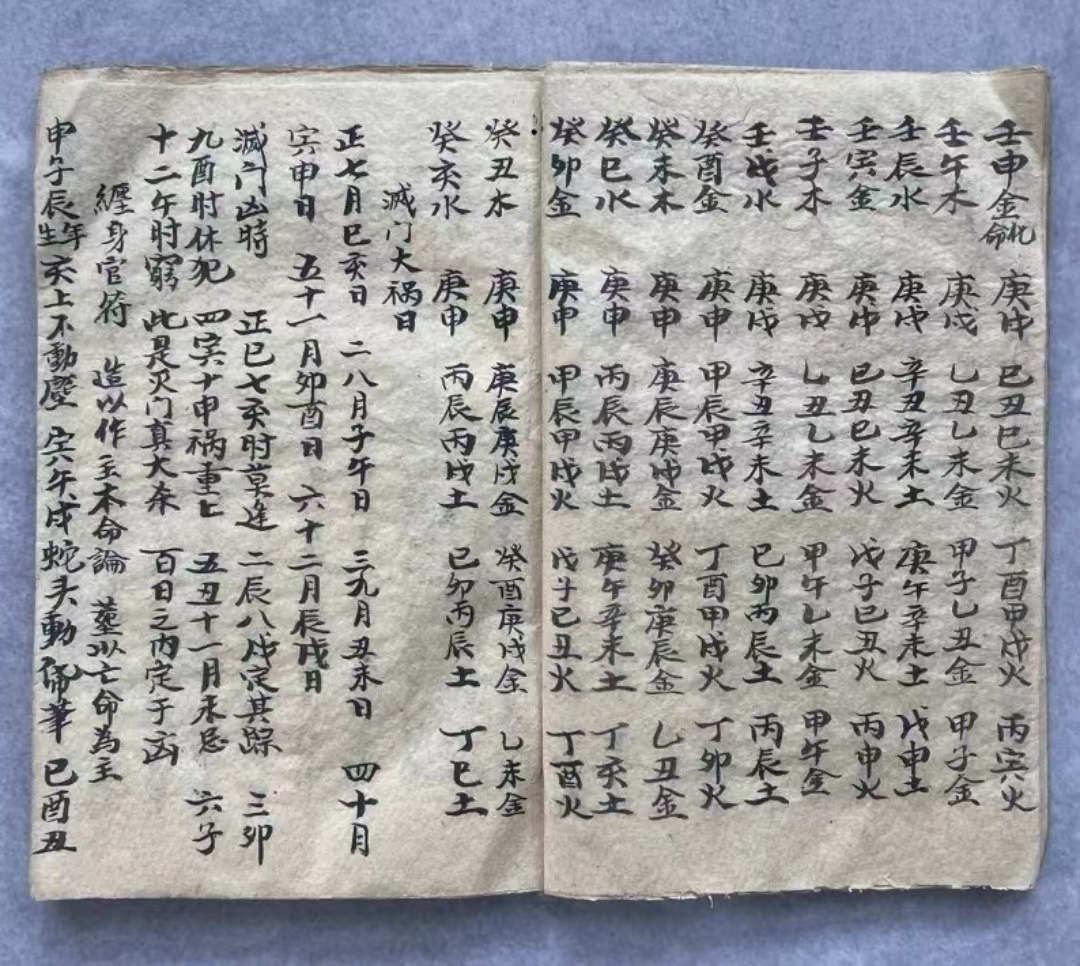 壬申金化命 庚戌 己丑己未火 丁酉甲戌火 丙寅火
壬午木 庚戌 乙丑乙未金 甲子乙丑金 甲子金
壬辰水 庚戌 辛丑辛未土 庚午辛未土 戊申土
壬寅金 庚戌 己丑己未火 戊子己丑火 丙申火
壬子木 庚戌 乙丑乙未金 甲午乙未金 甲午金
壬戌水 庚戌 辛丑辛未土 己卯丙辰土 丙辰土
癸酉金 庚申 甲辰甲戌火 丁酉甲戌火 丁卯火
癸未木 庚申 庚辰庚戌金 癸卯庚辰金 乙丑金
癸巳水 庚申 丙辰丙戌土 庚午辛未土 丁亥土
癸卯金 庚申 甲辰甲戌火 戊子己丑火 丁酉火
癸丑木 庚申 庚辰庚戌金 癸酉庚戌金 乙未金
癸亥水 庚申 丙辰丙戌土 己卯丙辰土 丁巳土
滅门大祸日
正七月巳亥日 二八月子午日 三九月丑未日 四十月
寅申日 五十一月卯酉日 六十二月辰戌日
滅门凶時 正巳七亥时莫逢 二辰八戌定其踪 三卯
九酉时休犯 四寅十申祸重七 五丑十一月未忌 六子
十二午时窮 此是灭门真大杀 百日之内定于凶
纏身官符 造以作主本命論 塟以亡命為主
申子辰年生亥上不動塵 寅午戌蛇头動 巳酉丑